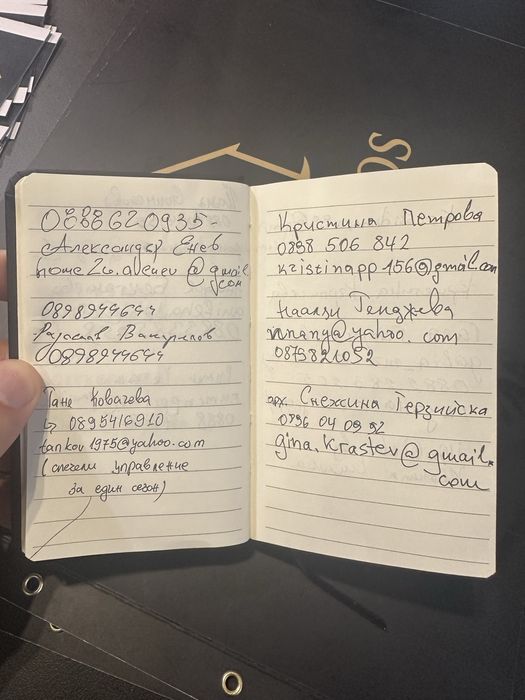 0888620935
Александър Енев
home2u.aenev@gmail.
com
0898944644
Радослав
00898944644
Тане Ковачева
↳ 0895416910
tankov1975@yahoo.com
(спечели управление
за един сезон)
Кристина Петрова
0898 506 842
kristinapp156@gmail.com
Генджева
@yahoo.com
0875821052
арх. Снежина Терзийска
0896 04 09 92
gina.krastev@gmail.
com
OS